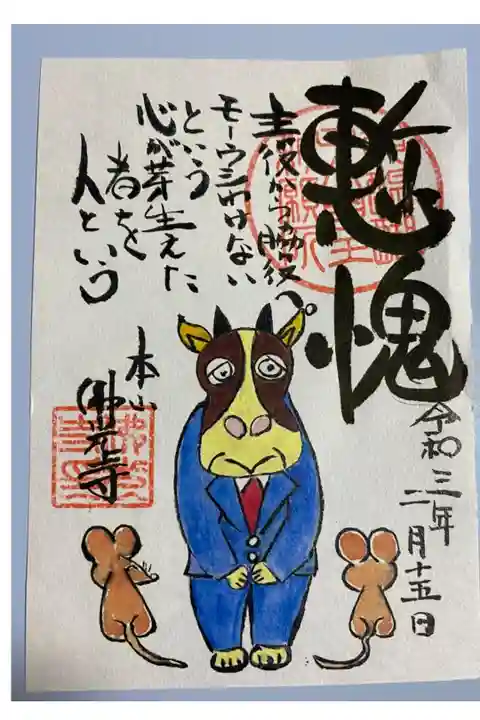 慙愧
主役から脇役へ
モーウシわけない
という
心が芽生えた
者を
人という
本山
佛光寺
令和三年
二月十五日